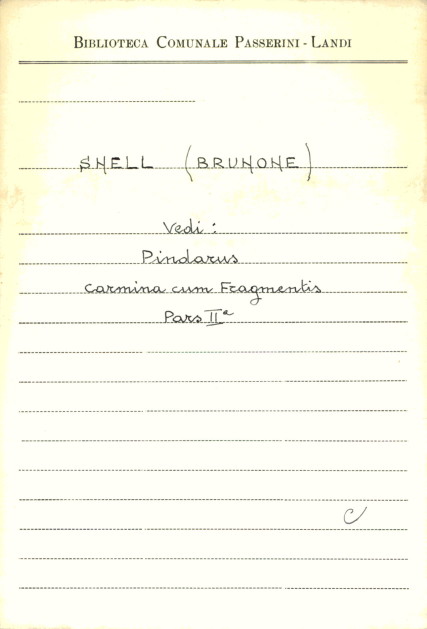 BIBLIOTECA COMUNALE PASSERINI - LANDI
SNELL (BRUNONE)
Vedi :
Pindarus
Carmina cum Fragmentis
Pars IIª
C